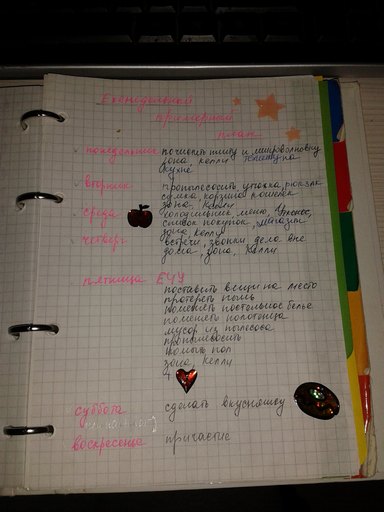 Еженедельный
примерный
план
понедельник почистить плиту и микроволновку
зона, келли
кухне
вторник пропылесосить упаковка, рюкзак
сумка, корзина кошачая
зона, Келли
среда холодильник, меню,
список покупок, магазин
зона, Келли
четверг встречи, звонки, дела вне
дома, зона, Келли
пятница ЕЧУ
поставить вещи на место
протереть пыль
поменять постельное белье
поменять полотенца
мусор из пылесоса
пропылесосить
помыть пол
зона Келли
суббота сделать вкусняшку
воскресенье причастие